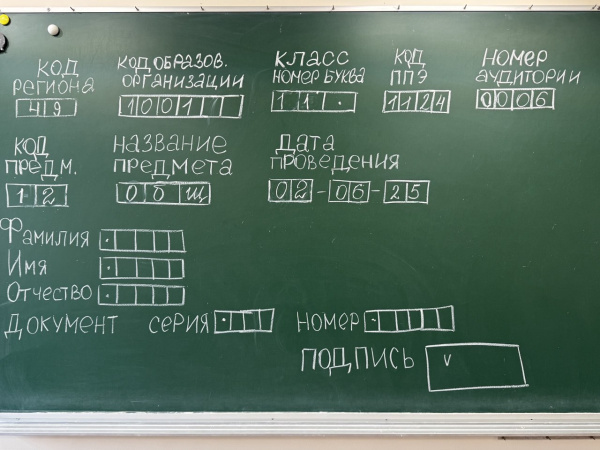 код региона
49
код образов. организации
1001
класс номер буква
11.
код ппэ
1124
номер аудитории
0006
код предм.
12
название предмета
общ
дата проведения
02-06-25
Фамилия
Имя
Отчество
Документ серия номер
подпись v